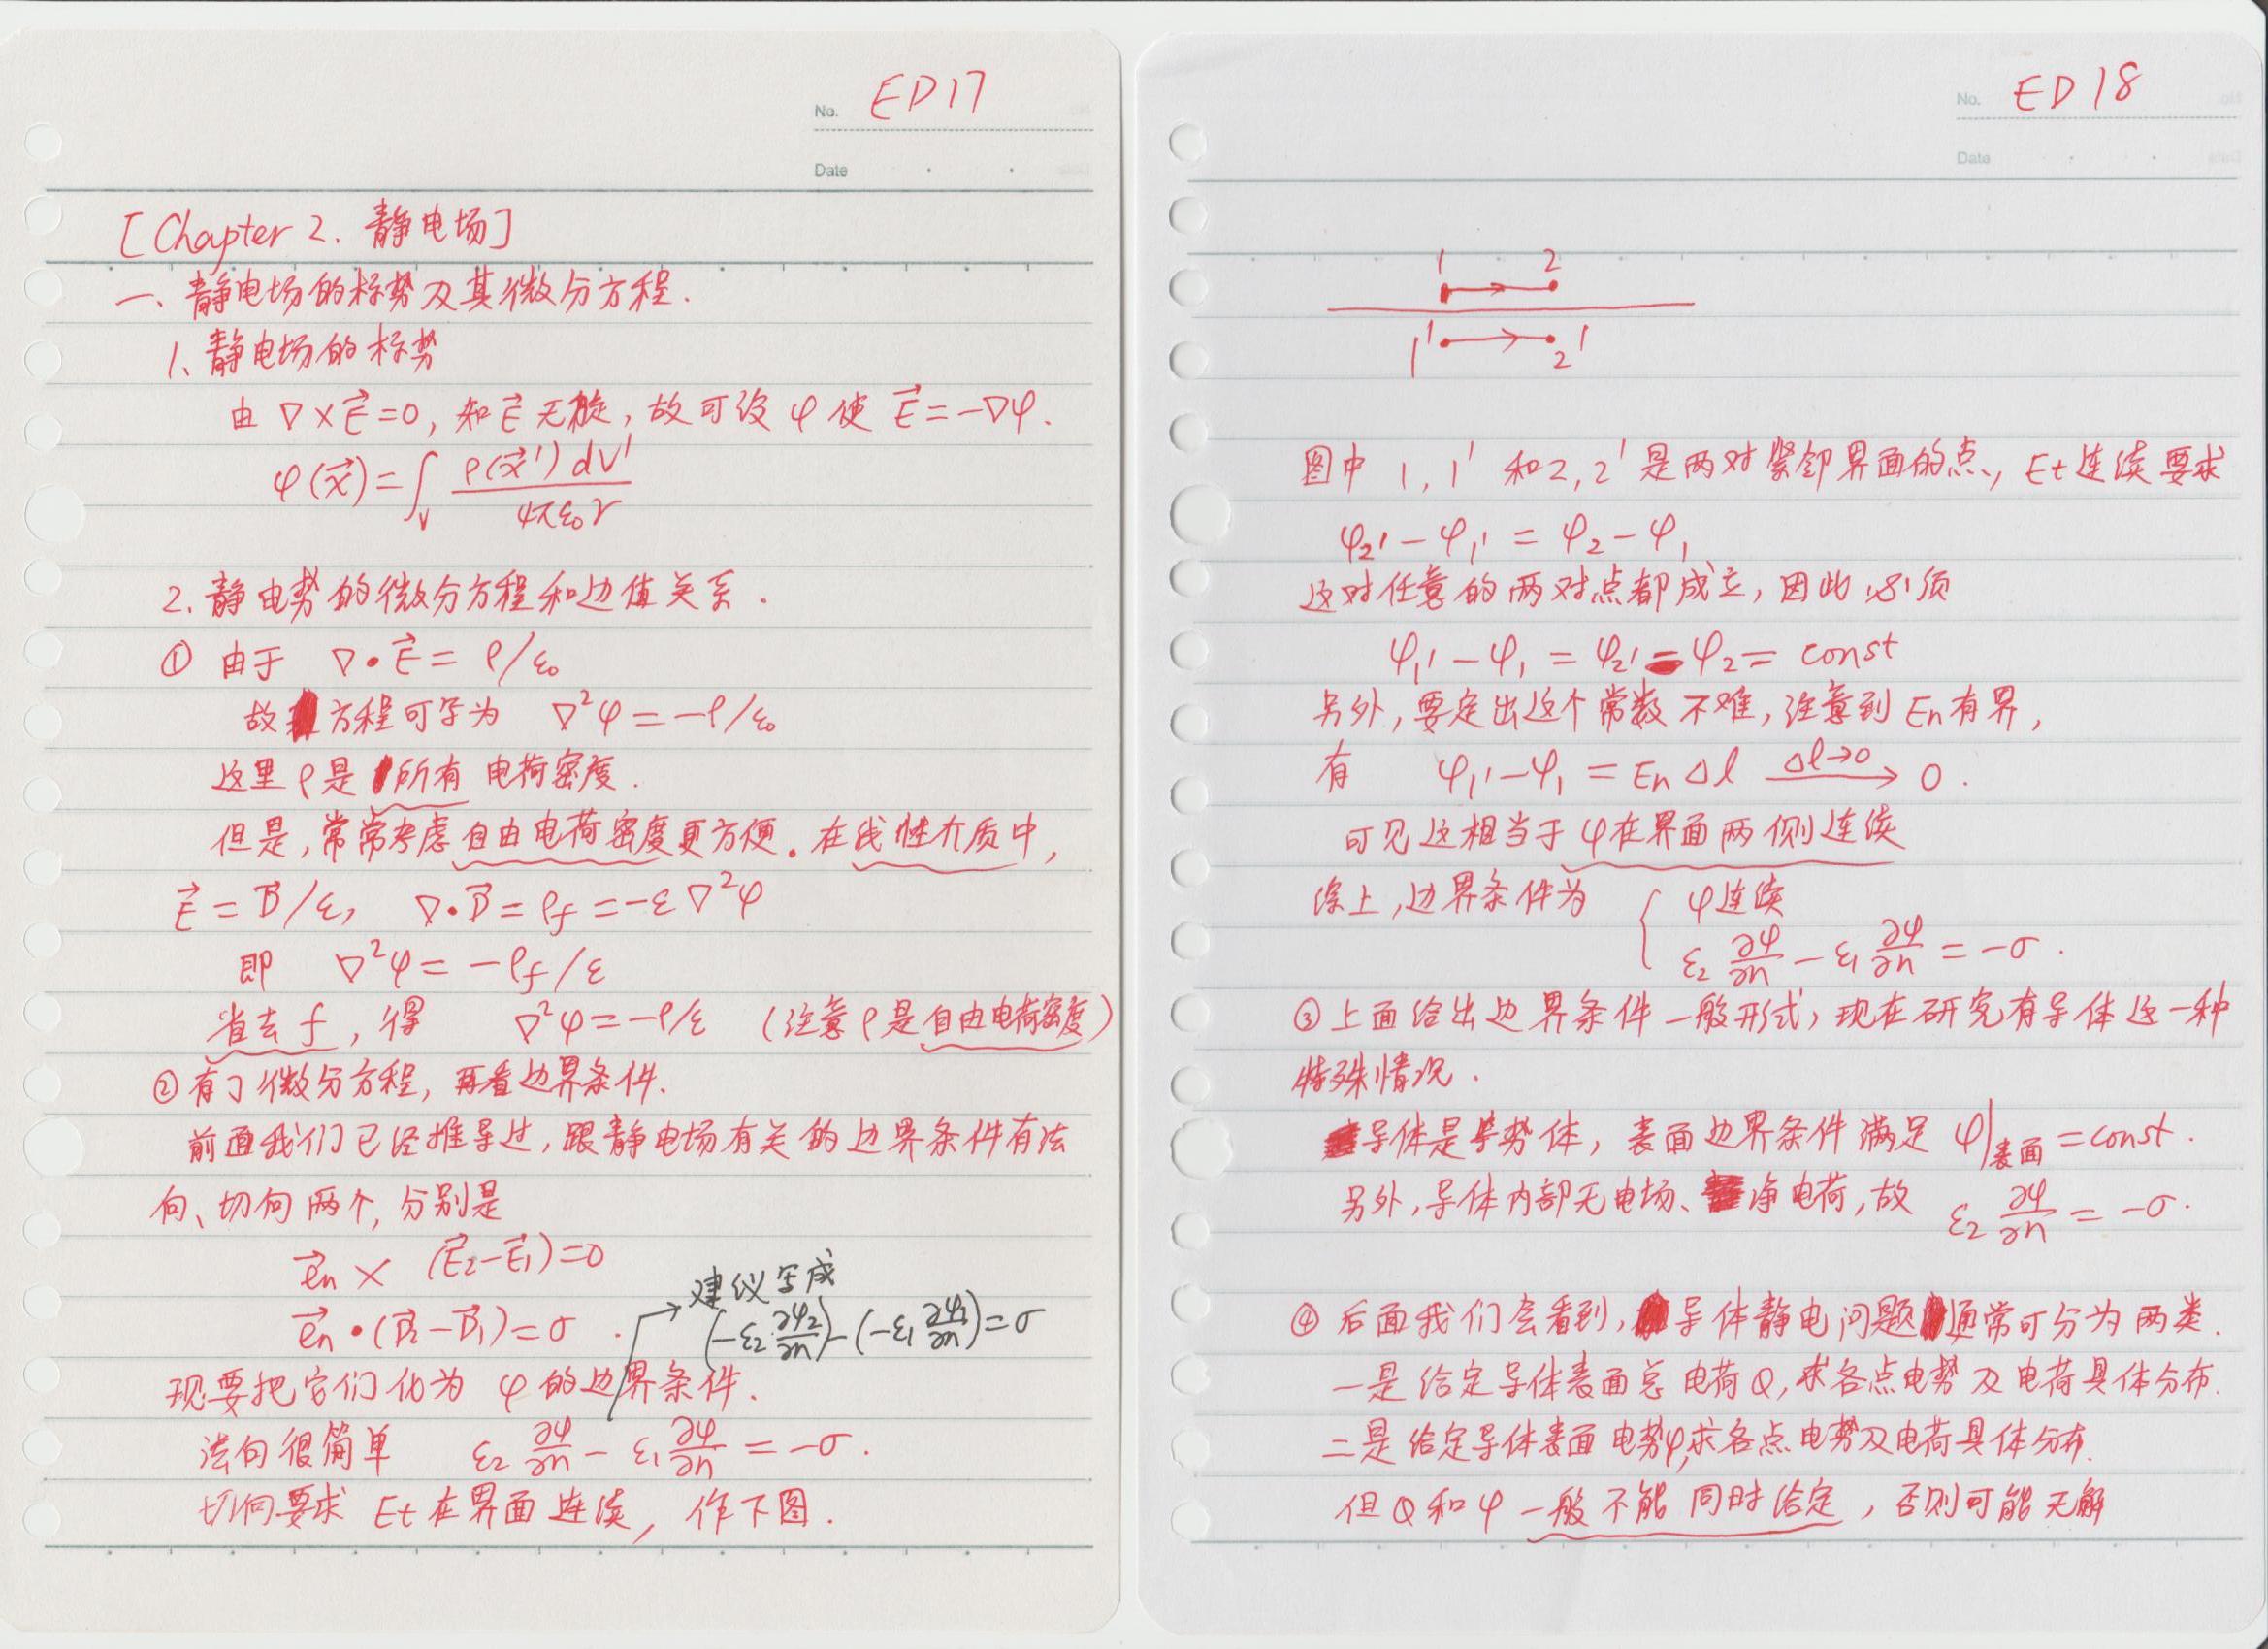 No. ED17
Date
[Chapter 2. 静电场]
一、静电场的标势及其微分方程.
1、静电场的标势
由 ∇×E⃗=0, 知E⃗无旋, 故可设 φ 使 E⃗=-∇φ.
φ(x⃗)=∫_V ρ(x⃗')dV'/4πε₀r
2.静电势的微分方程和边值关系.
① 由于 ∇•E⃗=ρ/ε₀
故方程可写为 ∇²φ=-ρ/ε₀
这里ρ是所有电荷密度.
但是,常常考虑自由电荷密度更方便.在线性介质中,
E⃗=D⃗/ε, ∇•D⃗=ρf=-ε∇²φ
即 ∇²φ=-ρf/ε
省去f,得 ∇²φ=-ρ/ε (注意ρ是自由电荷密度)
②有了微分方程,再看边界条件.
前面我们已经推导过,跟静电场有关的边界条件有法
向、切向两个,分别是
e⃗n×(E⃗2-E⃗1)=0
e⃗n•(D⃗2-D⃗1)=σ.
建议写成
(-ε2 ∂φ2/∂n)-(-ε1 ∂φ1/∂n)=σ
现要把它们化为 φ的边界条件.
法向很简单 ε2 ∂φ/∂n - ε1 ∂φ/∂n = -σ.
切向要求 Et在界面连续,作下图.
No. ED18
Date
1 2
1' 2'
图中 1,1' 和2,2'是两对紧邻界面的点,Et连续要求
φ2'-φ1'=φ2-φ1
这对任意的两对点都成立,因此必须
φ1'-φ1=φ2'-φ2=const
另外,要定出这个常数不难,注意到En有界,
有 φ1'-φ1=EnΔl Δl→0 → 0.
可见这相当于φ在界面两侧连续
综上,边界条件为 { φ连续
ε2 ∂φ/∂n - ε1 ∂φ/∂n = -σ.
③上面给出边界条件一般形式,现在研究有导体这一种
特殊情况.
导体是等势体,表面边界条件满足 φ|表面=const.
另外,导体内部无电场、净电荷,故 ε2 ∂φ/∂n = -σ.
④ 后面我们会看到,导体静电问题通常可分为两类.
一是给定导体表面总电荷Q,求各点电势及电荷具体分布.
二是给定导体表面电势φ,求各点电势及电荷具体分布.
但Q和φ一般不能同时给定,否则可能无解